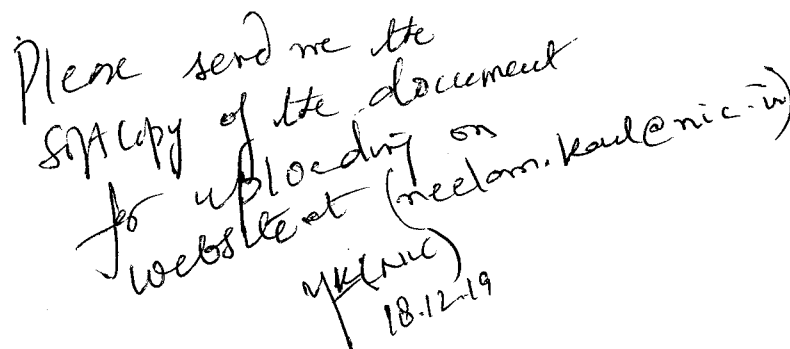 Please send me the
soft copy of the document
for uploading on
website at (neelam.kaul@nic.in)
(NIC)
18.12.19